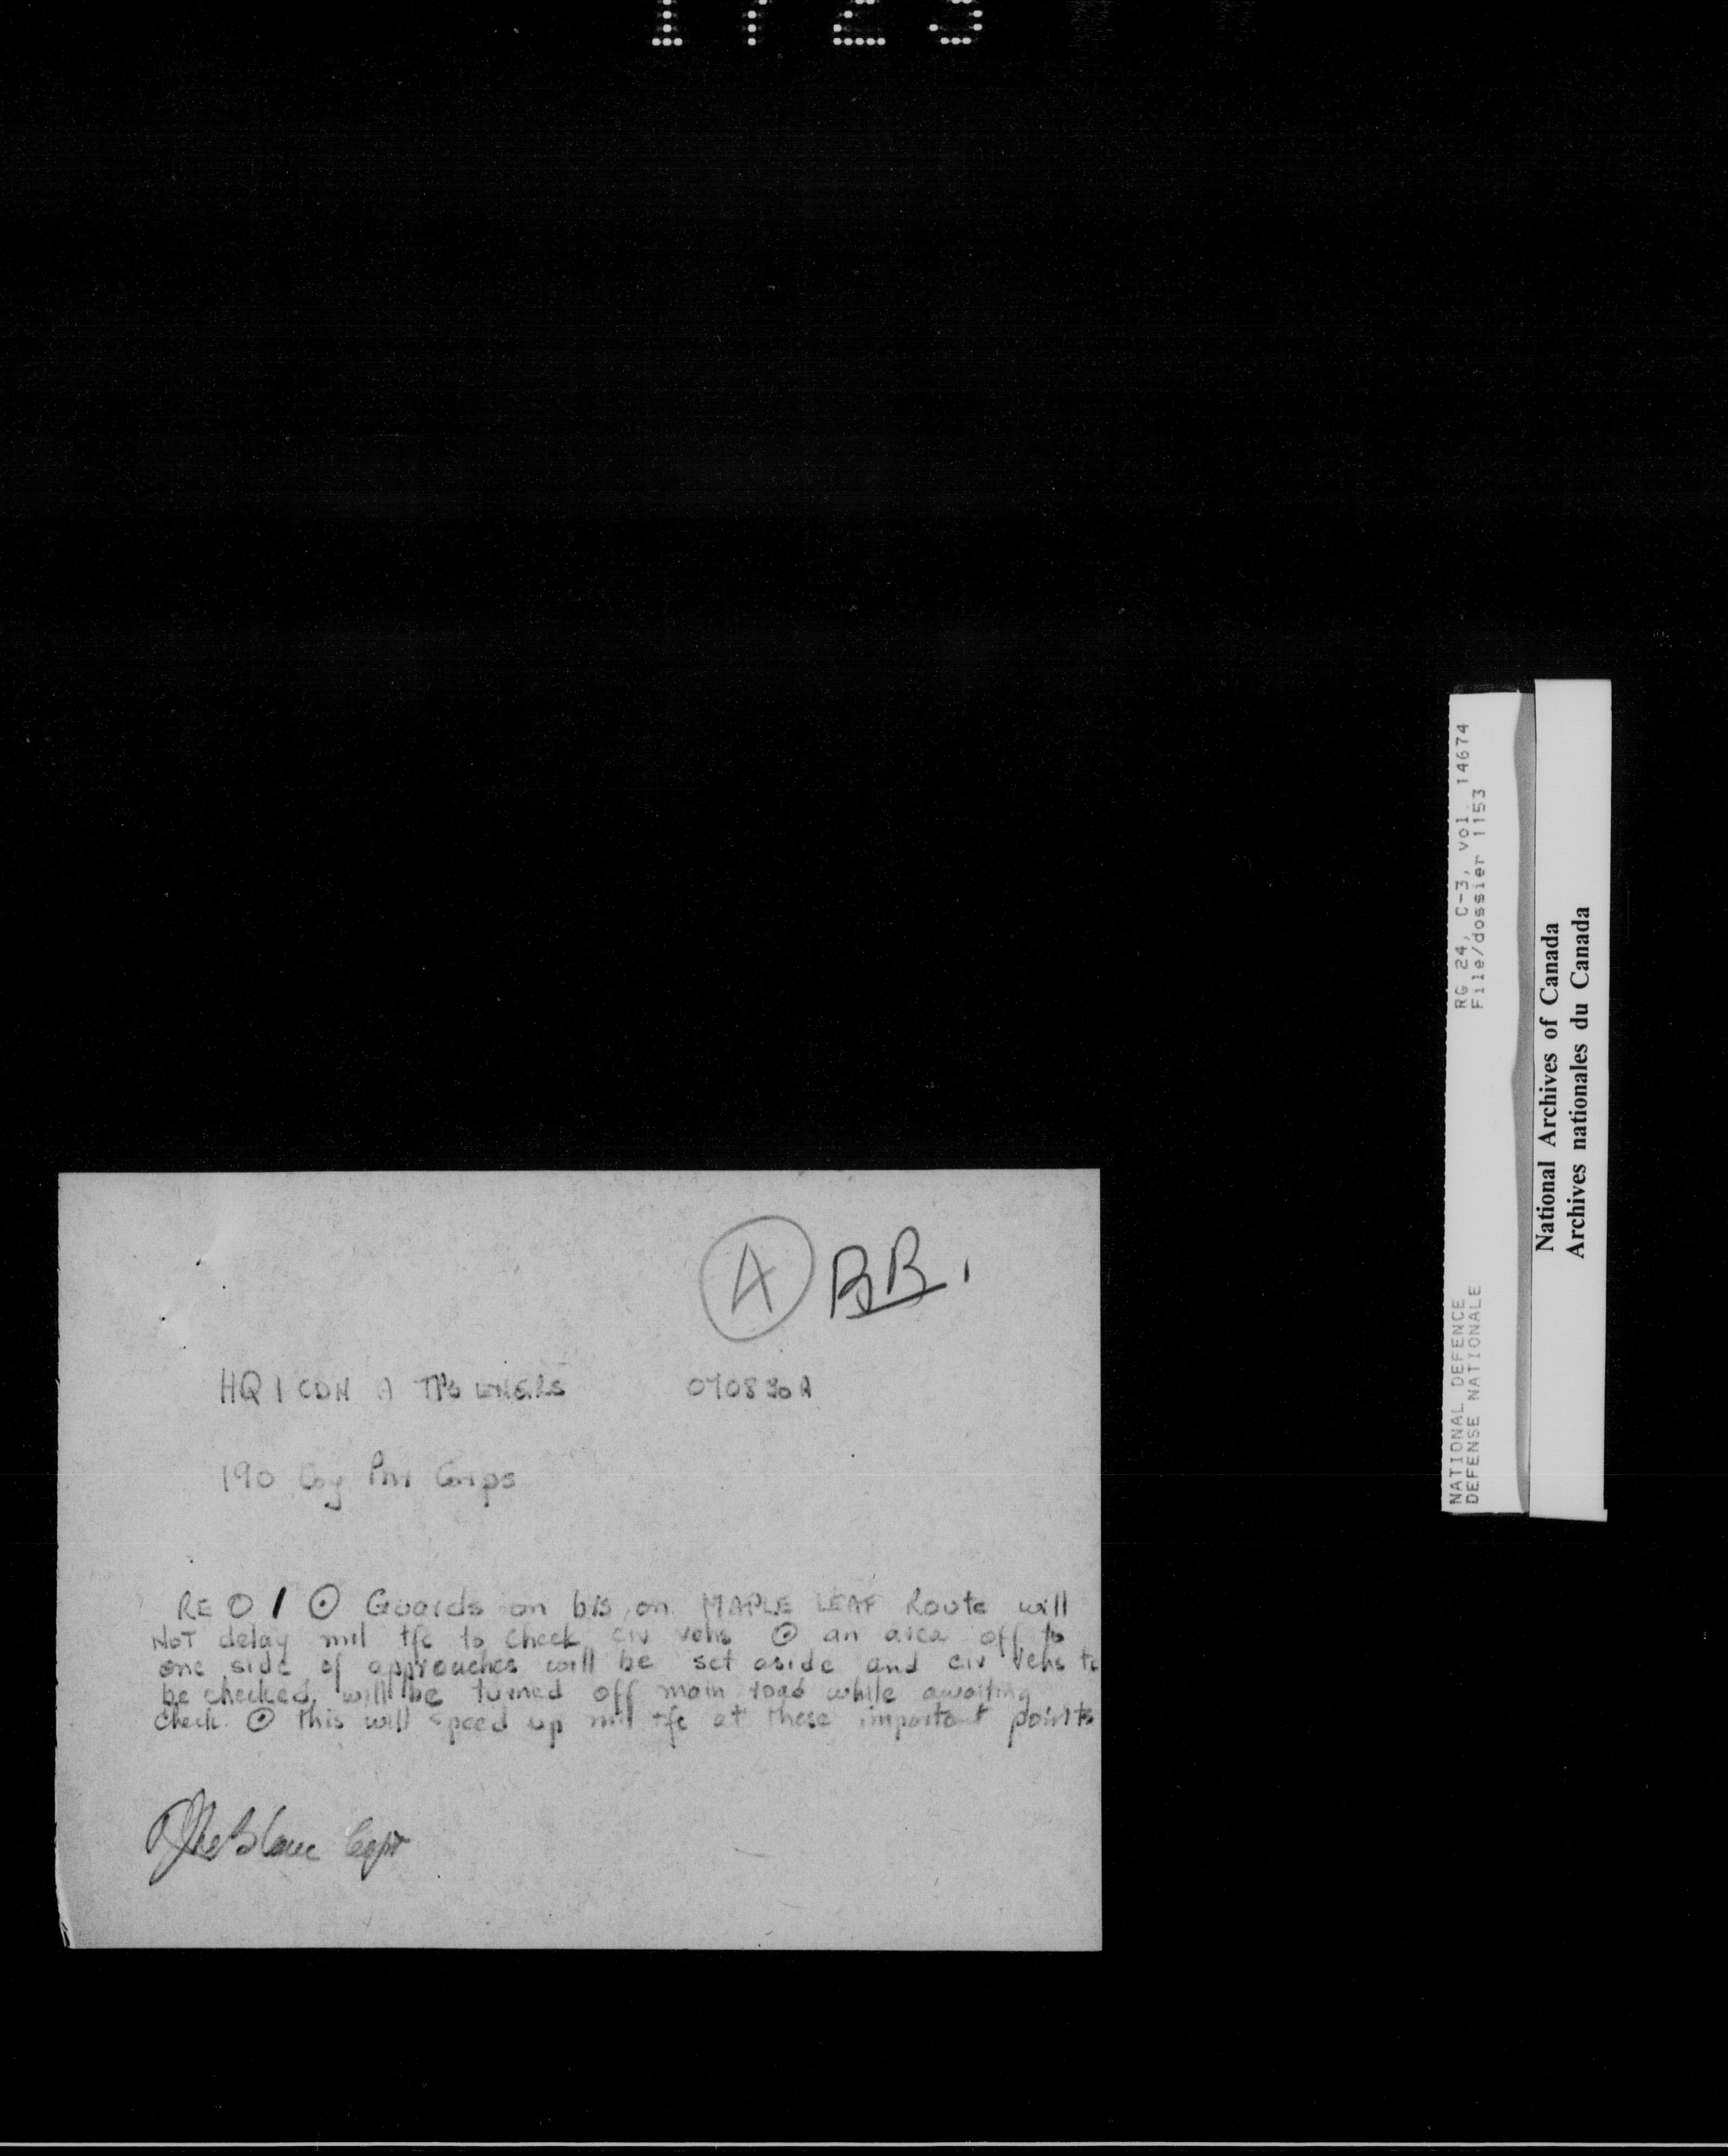 1723
A BB.
HQ 1 CDN A TPS ENGRS 070830A
190 Coy Pnr Corps
RE O 1 ⊙ Guards on brs on MAPLE LEAF Route will
NOT delay mil tfc to check civ vehs ⊙ an area off to
one side of approaches will be set aside and civ vehs to
be checked will be turned off main road while awaiting
check ⊙ this will speed up mil tfc at these important points
LeBlanc Capt
RG 24, C-3, vol. 14674
File/dossier 1153
NATIONAL DEFENCE
DEFENSE NATIONALE
National Archives of Canada
Archives nationales du Canada